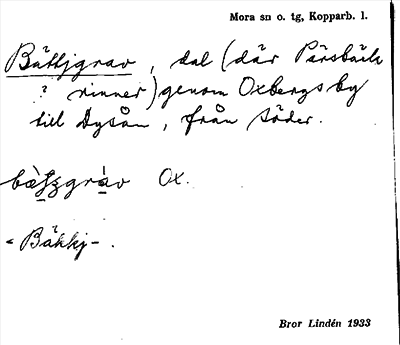 Mora sn o. tg, Kopparb. l.
Bätkjgrav, dal (där Pärsbäck
? rinner) genom Oxbergs by
till Dysån, från söder.
Ox.
- Bäkkj-.
Bror Lindén 1933